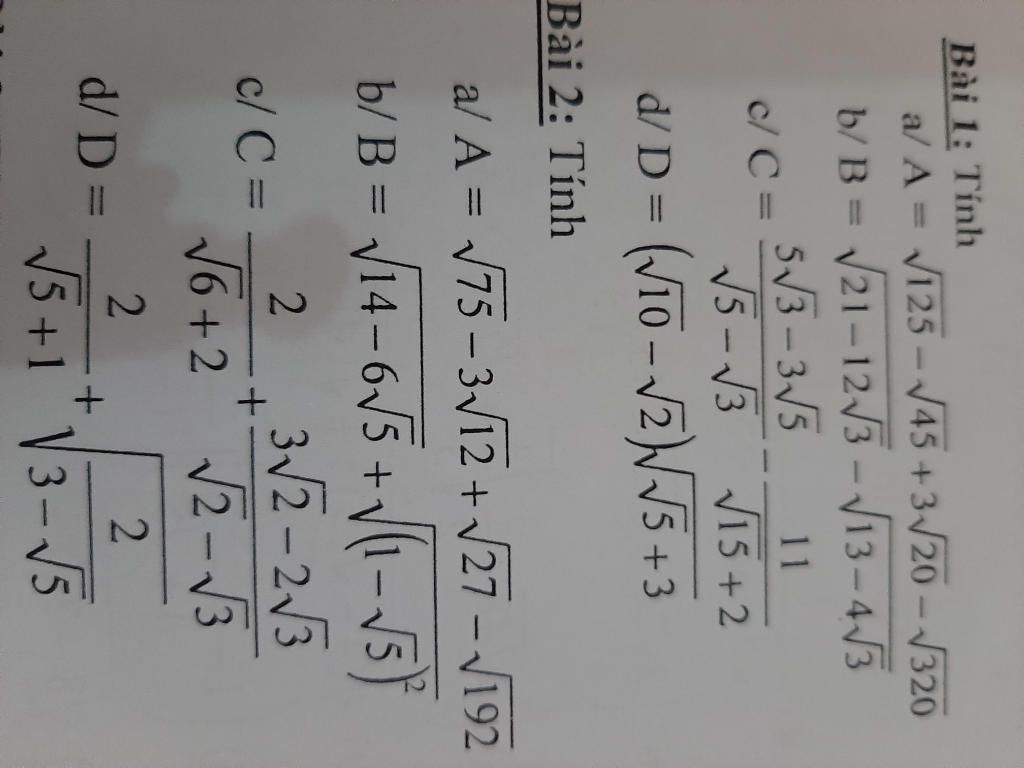 Bài 1: Tính
a/ A = √125 − √45 + 3√20 − √320
b/ B = √(21 − 12√3) − √(13 − 4√3)
c/ C = (5√3 − 3√5)/(√5 − √3) − 11/(√15 + 2)
d/ D = (√10 − √2)√(√5 + 3)
Bài 2: Tính
a/ A = √75 − 3√12 + √27 − √192
b/ B = √(14 − 6√5) + √((1 − √5)²)
c/ C = 2/(√6 + 2) + (3√2 − 2√3)/(√2 − √3)
d/ D = 2/(√5 + 1) + √(2/(3 − √5))